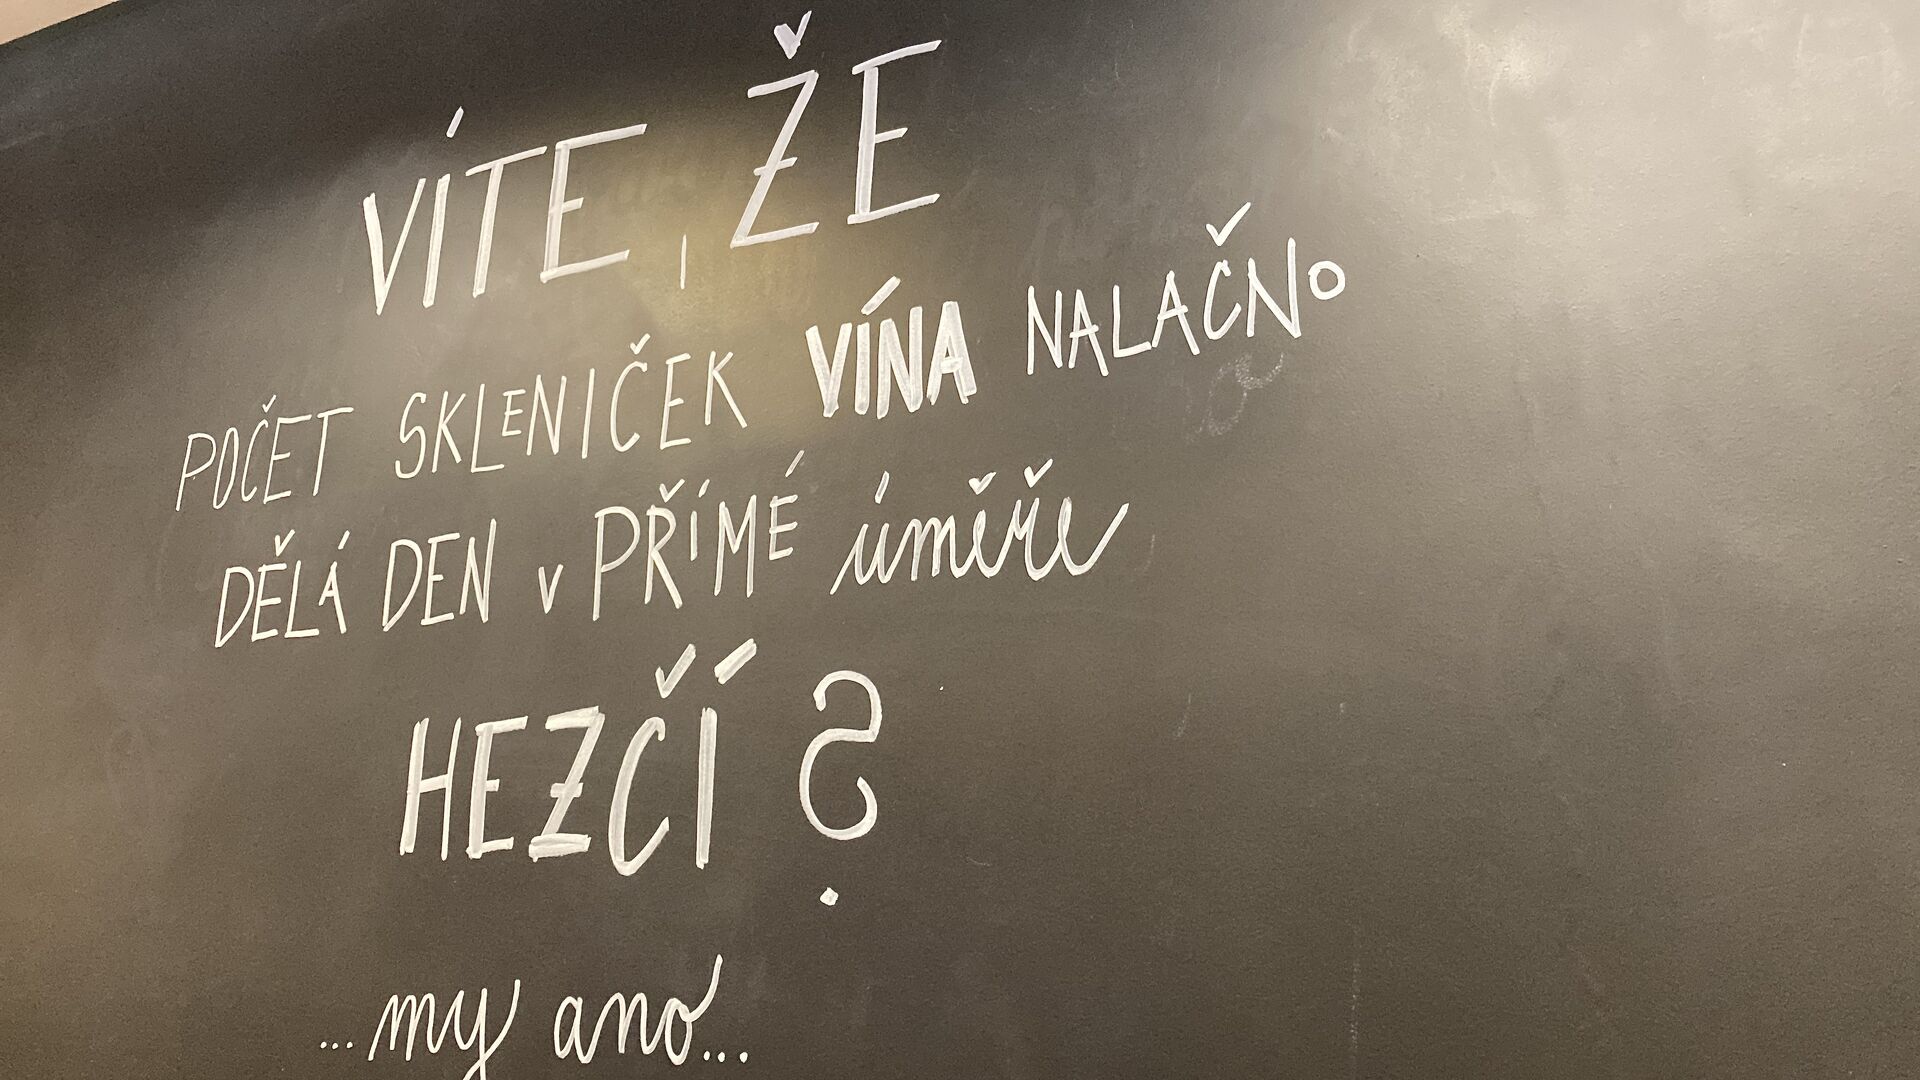 VÍTE, ŽE
POČET SKLENIČEK VÍNA NALAČNO
DĚLÁ DEN v PŘÍMÉ úměře
HEZČÍ ?
...my ano...